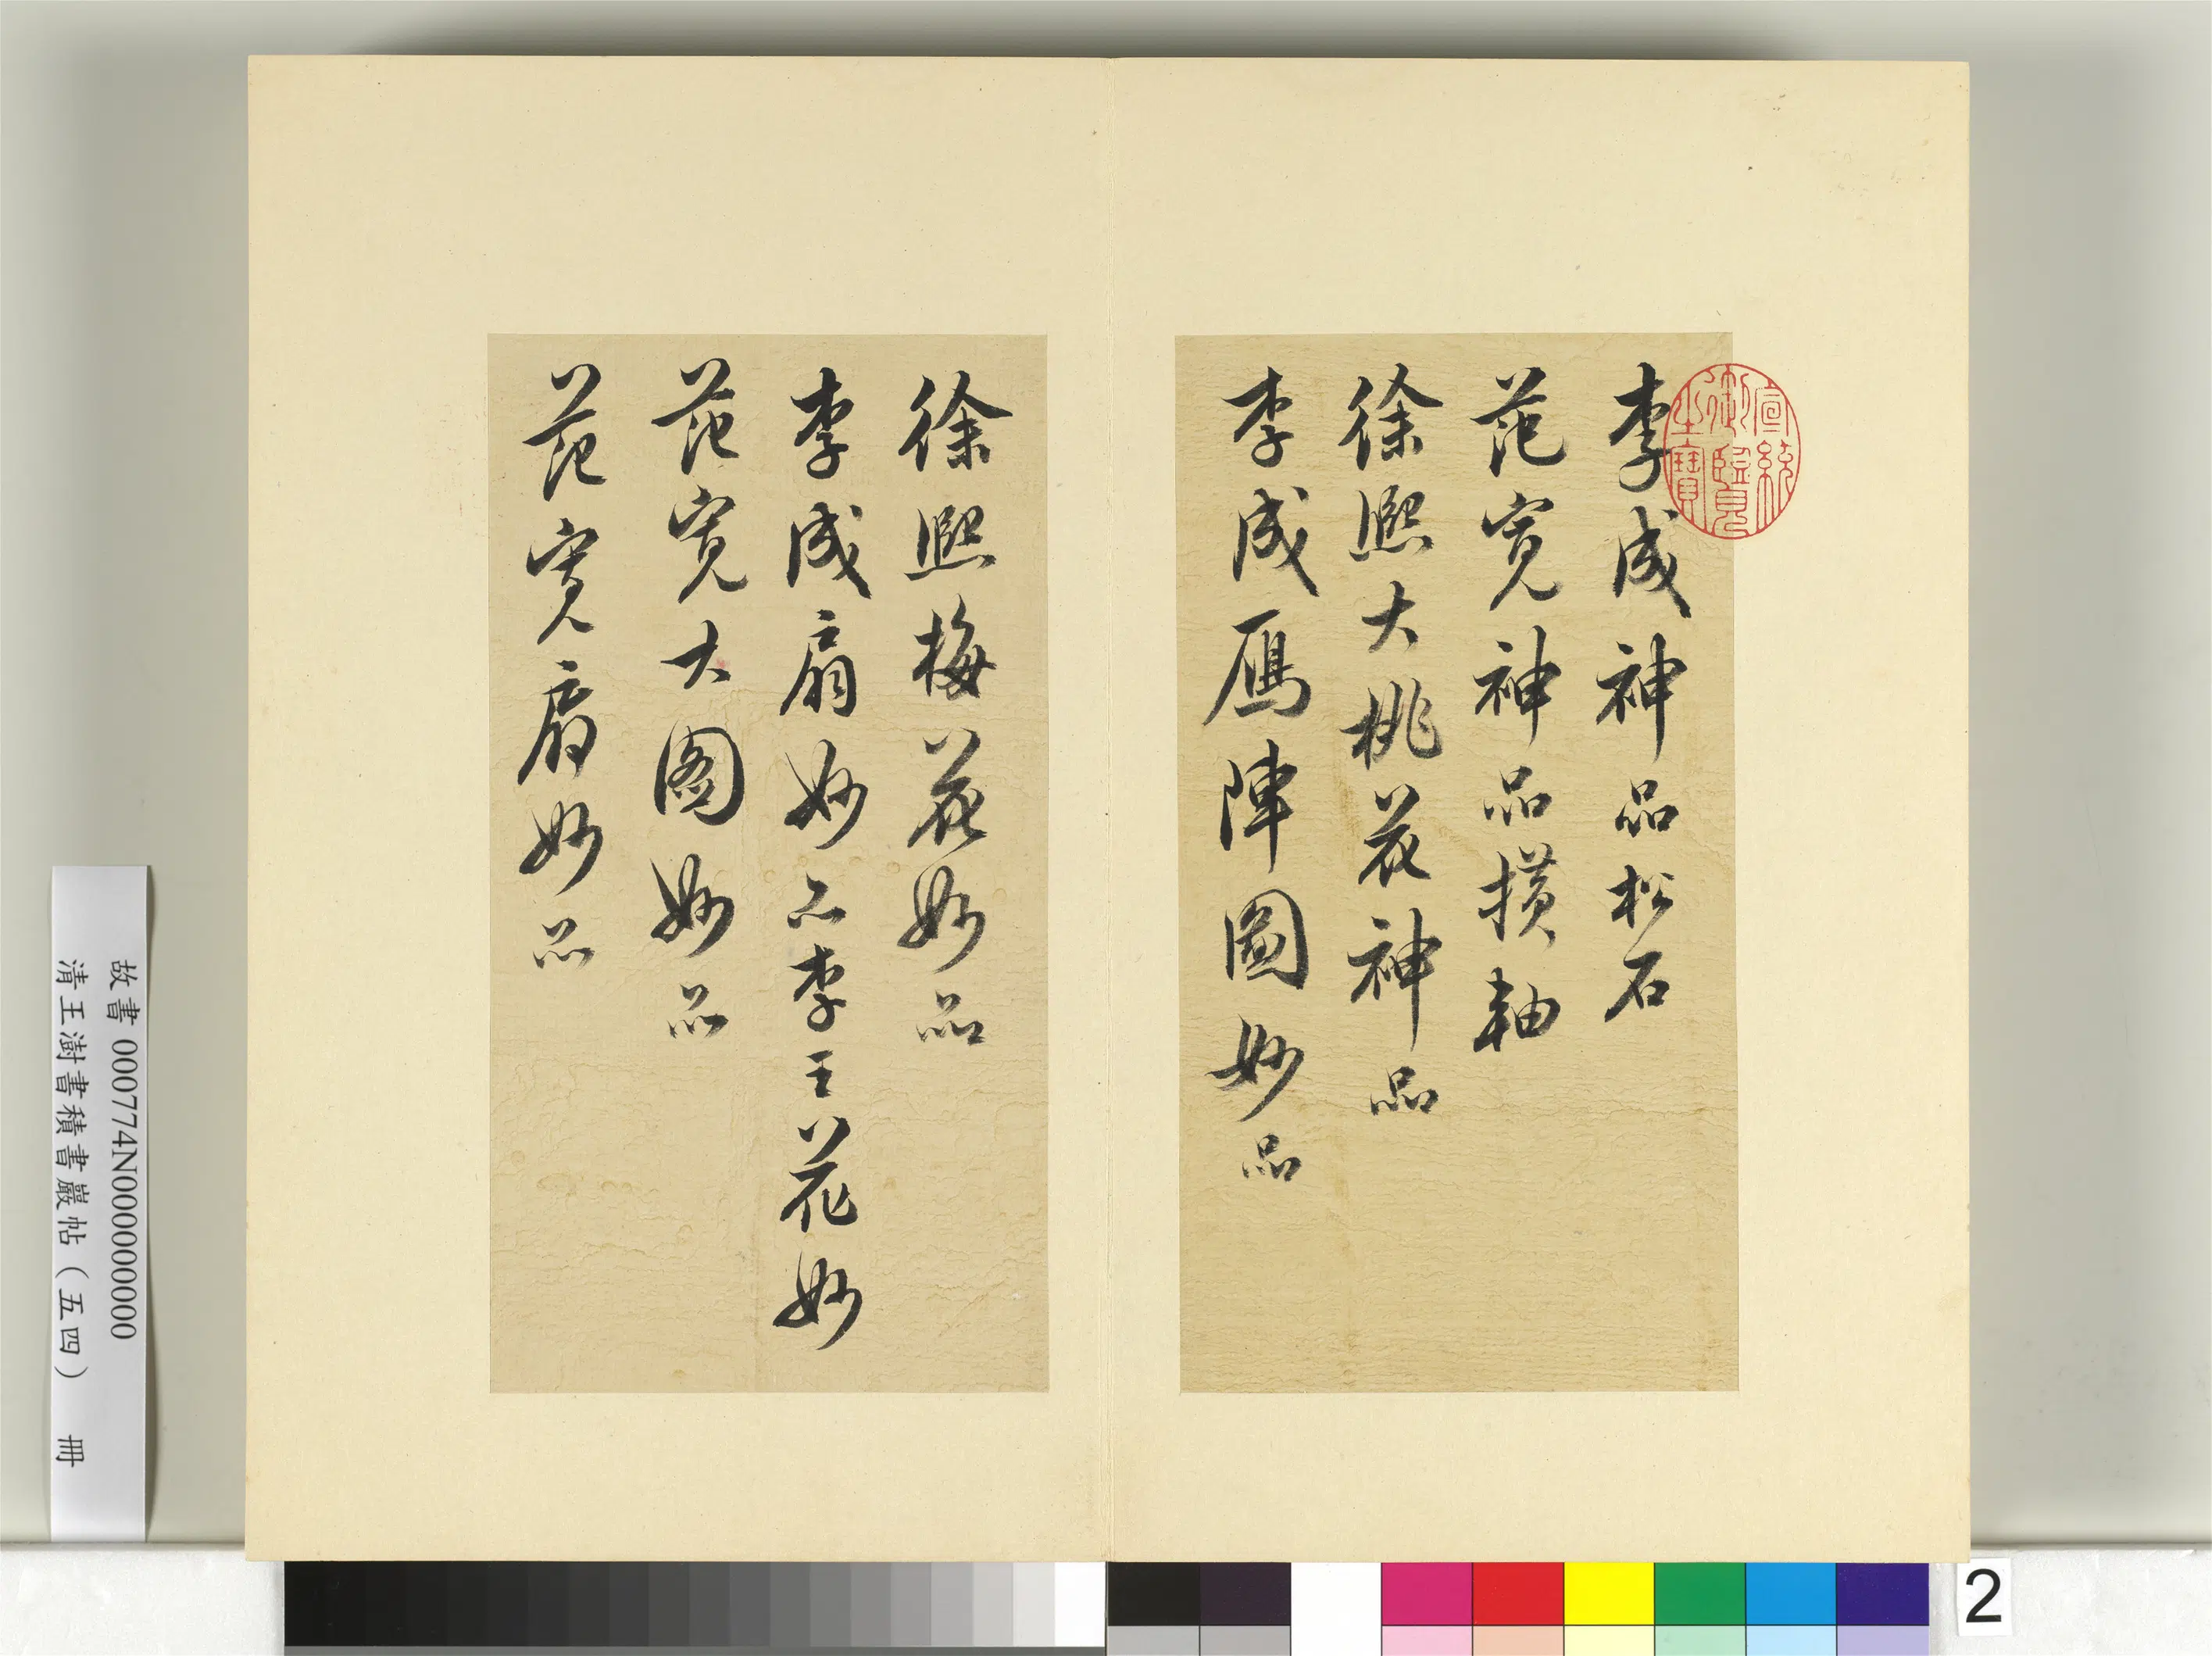 李成神品松石
范寬神品橫軸
徐熙大桃花神品
李成雁陣圖妙品
徐熙梅花妙品
李成扇妙品李王花妙
范寬大圖妙品
范寬扇妙品
宣統
御覽
之寶
故書000774N000000000
清王澍書積書巖帖(五四) 冊
2